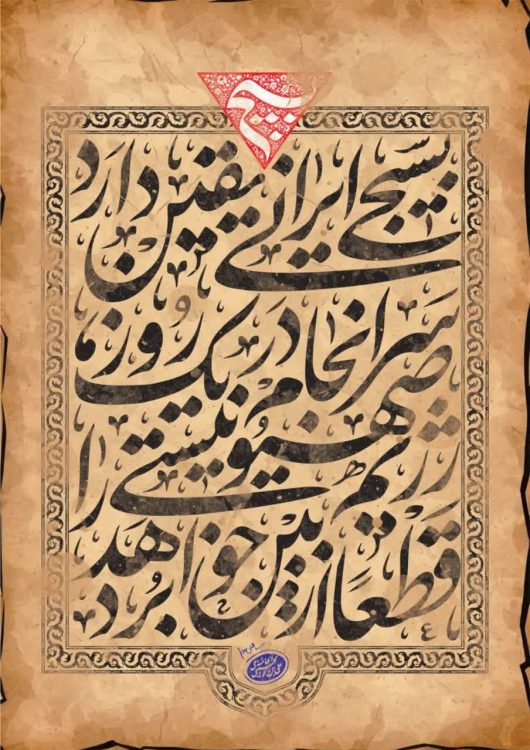 بسیج
بسیجی ایرانی یقین دارد
سرانجام در یک روز،
رژیم صهیونیستی را
قطعاً از بین خواهد برد